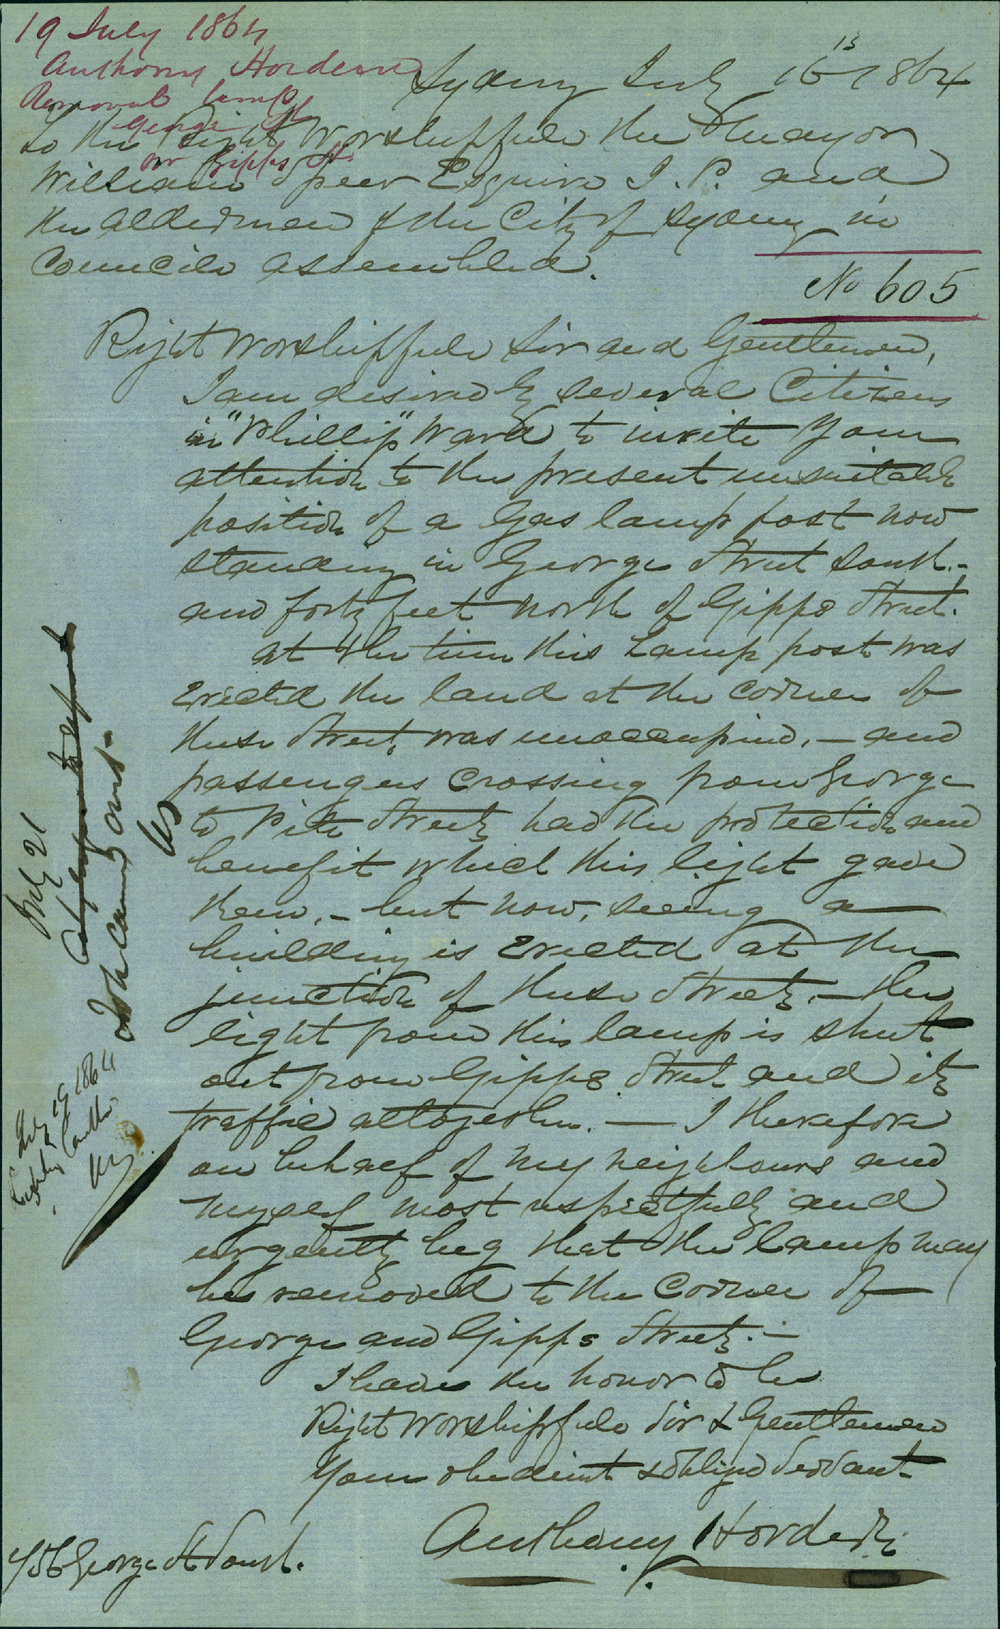 19 July 1864
Anthony Hordern
Removal lamp
George St
nr Gipps St.
Sydney July 16 1864
To the Right Worshipfull the Mayor
William Speer Esquire J. P. and
the Aldermen of the City of Sydney in
Councile assembled.
No 605
Right Worshipfull Sir and Gentlemen,
I am desired by several Citizens
in "Phillip" Ward to invite Your
attention to the present unsuitable
position of a Gas lamp post now
standing in George Street South,-
and forty feet north of Gipps Street.
At the time this Lamp post was
Erected the land at the corner of
these Streets was unoccupied, — and
passengers crossing from George
to Pitt Street, had the protection and
benefit which this light gave
them, – but now, seeing a
building is Erected at the
junction of these Streets, – the
light from this lamp is shut
out from Gipps Street and its
traffic altogether. — I therefore
on behalf of my neighbours and
myself most respectfully and
urgently beg that the lamp may
be removed to the Corner of
George and Gipps Streets. –
I have the honor to be
Right Worshipfull Sir & Gentlemen
Your obedient & oblig'd Servant
Anthony Hordern
756 George St South.
July 21
July 19 1864